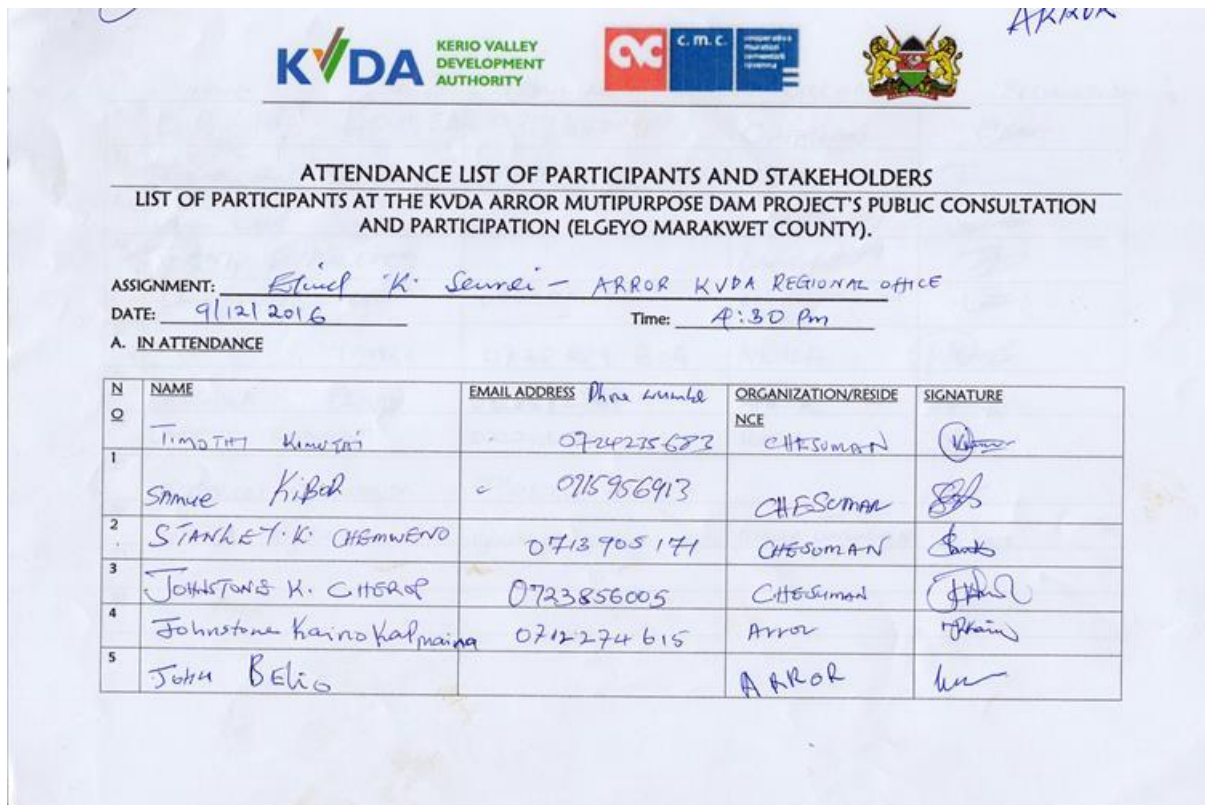 ARROR
KVDA KERIO VALLEY
DEVELOPMENT
AUTHORITY
c.m.c. cooperativa
muratori
cementisti
ravenna
ATTENDANCE LIST OF PARTICIPANTS AND STAKEHOLDERS
LIST OF PARTICIPANTS AT THE KVDA ARROR MUTIPURPOSE DAM PROJECT'S PUBLIC CONSULTATION
AND PARTICIPATION (ELGEYO MARAKWET COUNTY).
ASSIGNMENT: K. – ARROR KVDA REGIONAL OFFICE
DATE: 9/12/2016 Time: 4:30 Pm
A. IN ATTENDANCE
NO NAME EMAIL ADDRESS Phone number ORGANIZATION/RESIDENCE SIGNATURE
TIMOTHY 0724235683 CHESUMAN
1 Samue KiBOR 0715956913 CHESUMAN
2. STANLEY. K. CHEMWENO 0713905171 CHESUMAN
3 JOHNSTONE K. CHEROP 0723856005 CHESUMAN
4 Johnstone Kaino 0712274615 Arror
5 JOHN BELIO ARROR